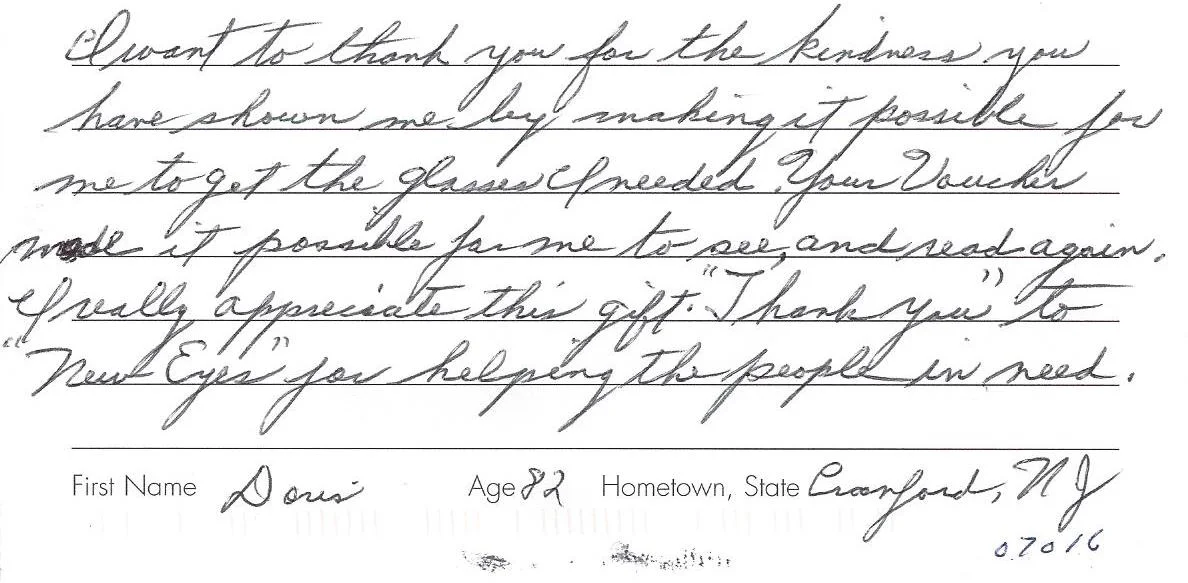 I want to thank you for the kindness you
have shown me by making it possible for
me to get the glasses I needed. Your Voucher
made it possible for me to see, and read again.
I really appreciate this gift. "Thank You" to
"New Eyes" for helping the people in need.
First Name Doris Age 82 Hometown, State Cranford, NJ
07016